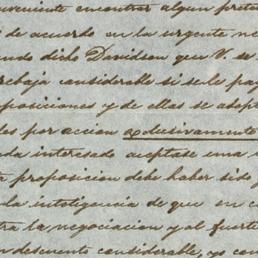 veniente encontrar algun prete
i de acuerdo en la urgente ne
ando dicho Davidson que V. se
rebaja considerable si se le pag
oposiciones y de ellas se adopt
les por accion exclusivamente
ada interesado aceptase una
ta proposicion debe haber sido f
la inteligencia de que en c
tra la negociacion y al fuerte
n descuento considerable, yo con